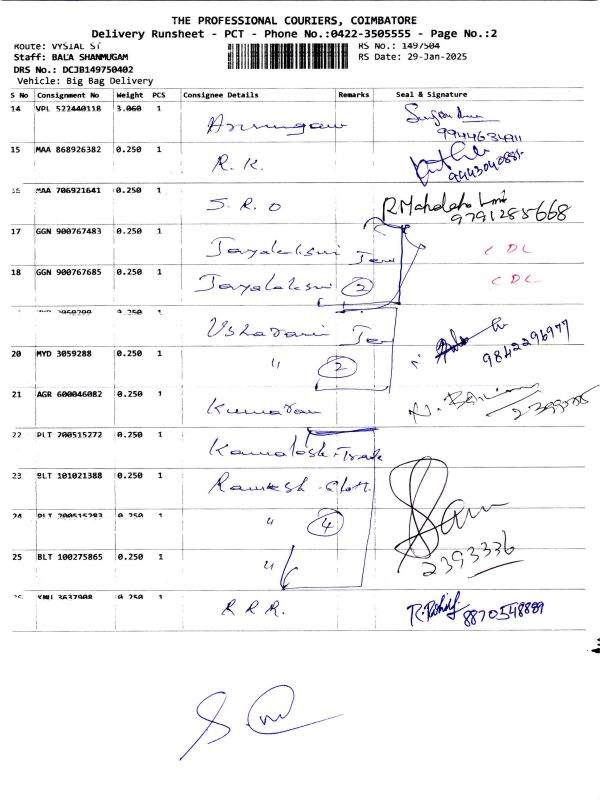 THE PROFESSIONAL COURIERS, COIMBATORE
Delivery Runsheet - PCT - Phone No.:0422-3505555 - Page No.:2
Route: VYSIAL ST RS No.: 1497504
Staff: BALA SHANMUGAM RS Date: 29-Jan-2025
DRS No.: DCJB149750402
Vehicle: Big Bag Delivery
S No Consignment No Weight PCS Consignee Details Remarks Seal & Signature
14 VPL 522440118 3.060 1 Arumugam
9944634911
15 MAA 868926382 0.250 1 R.K. 9443040881
16 MAA 706921641 0.250 1 S.R.O R. Mahalaho
9791285668
17 GGN 900767483 0.250 1 Jayalakshmi Jew CDL
18 GGN 900767685 0.250 1 Jayalakshmi 2 CDL
0.250 1 Usharani Jew
20 MYD 3059288 0.250 1 " 2 9842296977
21 AGR 600046082 0.250 1 Kumaran
22 PLT 200515272 0.250 1 Kamalesh Trade
23 BLT 101021388 0.250 1 Ramesh
24 PLT 200515283 0.250 1 " 4
25 BLT 100275865 0.250 1 " 2393336
3637908 0.250 1 R R R. 8870548889